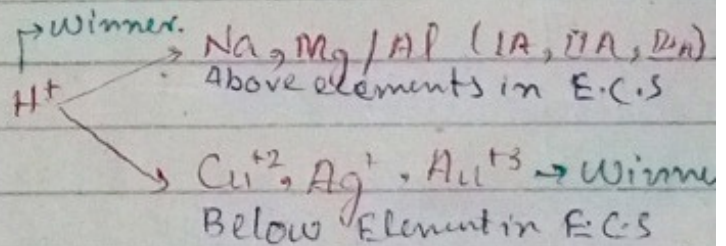 →Winner.
Na, Mg / Al (IA, IIA, IIIA)
H+
Above elements in E.C.S
Cu+2, Ag+, Au+3 → Winne
Below Element in E.C.S